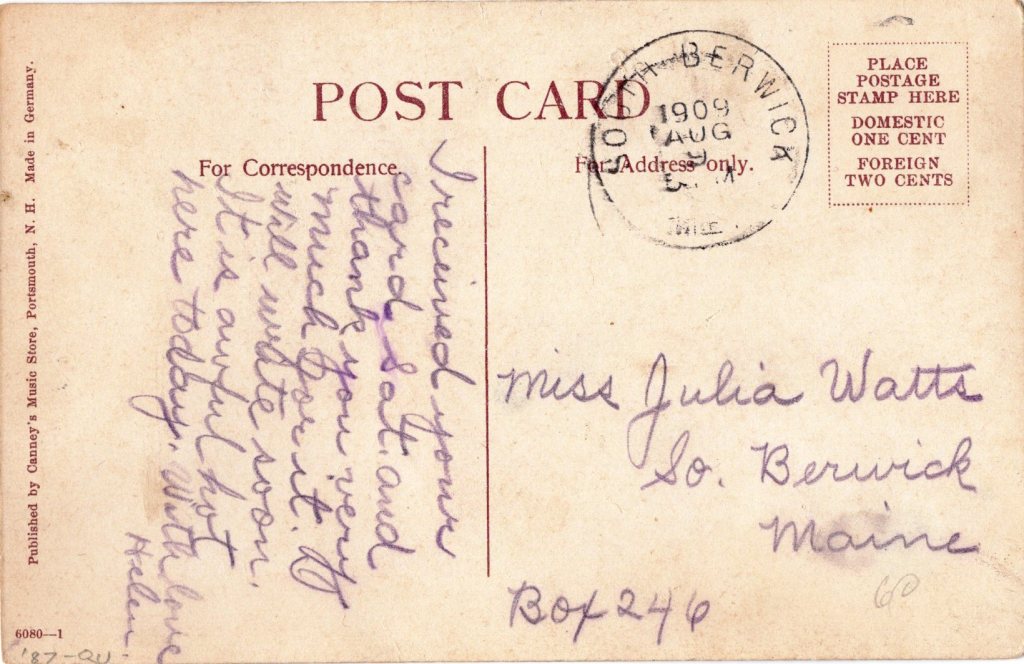 POST CARD
For Correspondence.
For Address only.
PLACE
POSTAGE
STAMP HERE
DOMESTIC
ONE CENT
FOREIGN
TWO CENTS
SOUTH BERWICK
1909
AUG
9
M
I received your
card Sat. and
thank you very
much for it. I
will write soon.
It is awful hot
here today. With love
Helen.
Miss Julia Watts
So. Berwick
Maine
Box 246
60
Published by Canney's Music Store, Portsmouth, N. H. Made in Germany.
6080—1